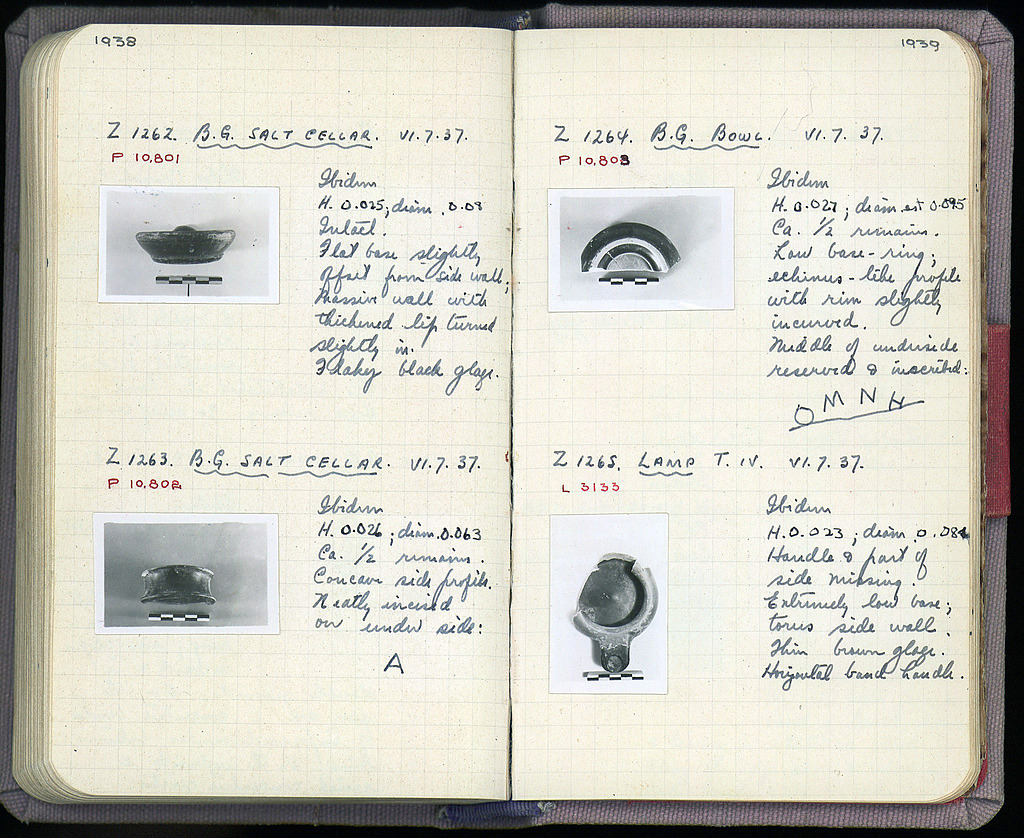 1938
Z 1262. B.G. SALT CELLAR. VI.7.37.
P 10,801
Ibidem
H. 0.025; diam. 0.08
Intact.
Flat base slightly
offset from side wall;
massive wall with
thickened lip turned
slightly in.
Flakey black glaze.
Z 1263. B.G. SALT CELLAR. VI.7.37.
P 10,802
Ibidem
H. 0.026; diam. 0.063
Ca. 1/2 remains.
Concave side profile.
Neatly incised
on under side:
A
1939
Z 1264. B.G. BOWL. VI.7.37.
P 10,803
Ibidem
H. 0.027; diam est 0.095
Ca. 1/2 remains.
Low base-ring;
echinus-like profile
with rim slightly
incurved.
Middle of underside
reserved & inscribed:
OMNH
Z 1265. LAMP T. IV. VI.7.37.
L 3133
Ibidem
H. 0.023; diam 0.084
Handle & part of
side missing.
Extremely low base;
torus side wall.
Thin brown glaze.
Horizontal band handle.